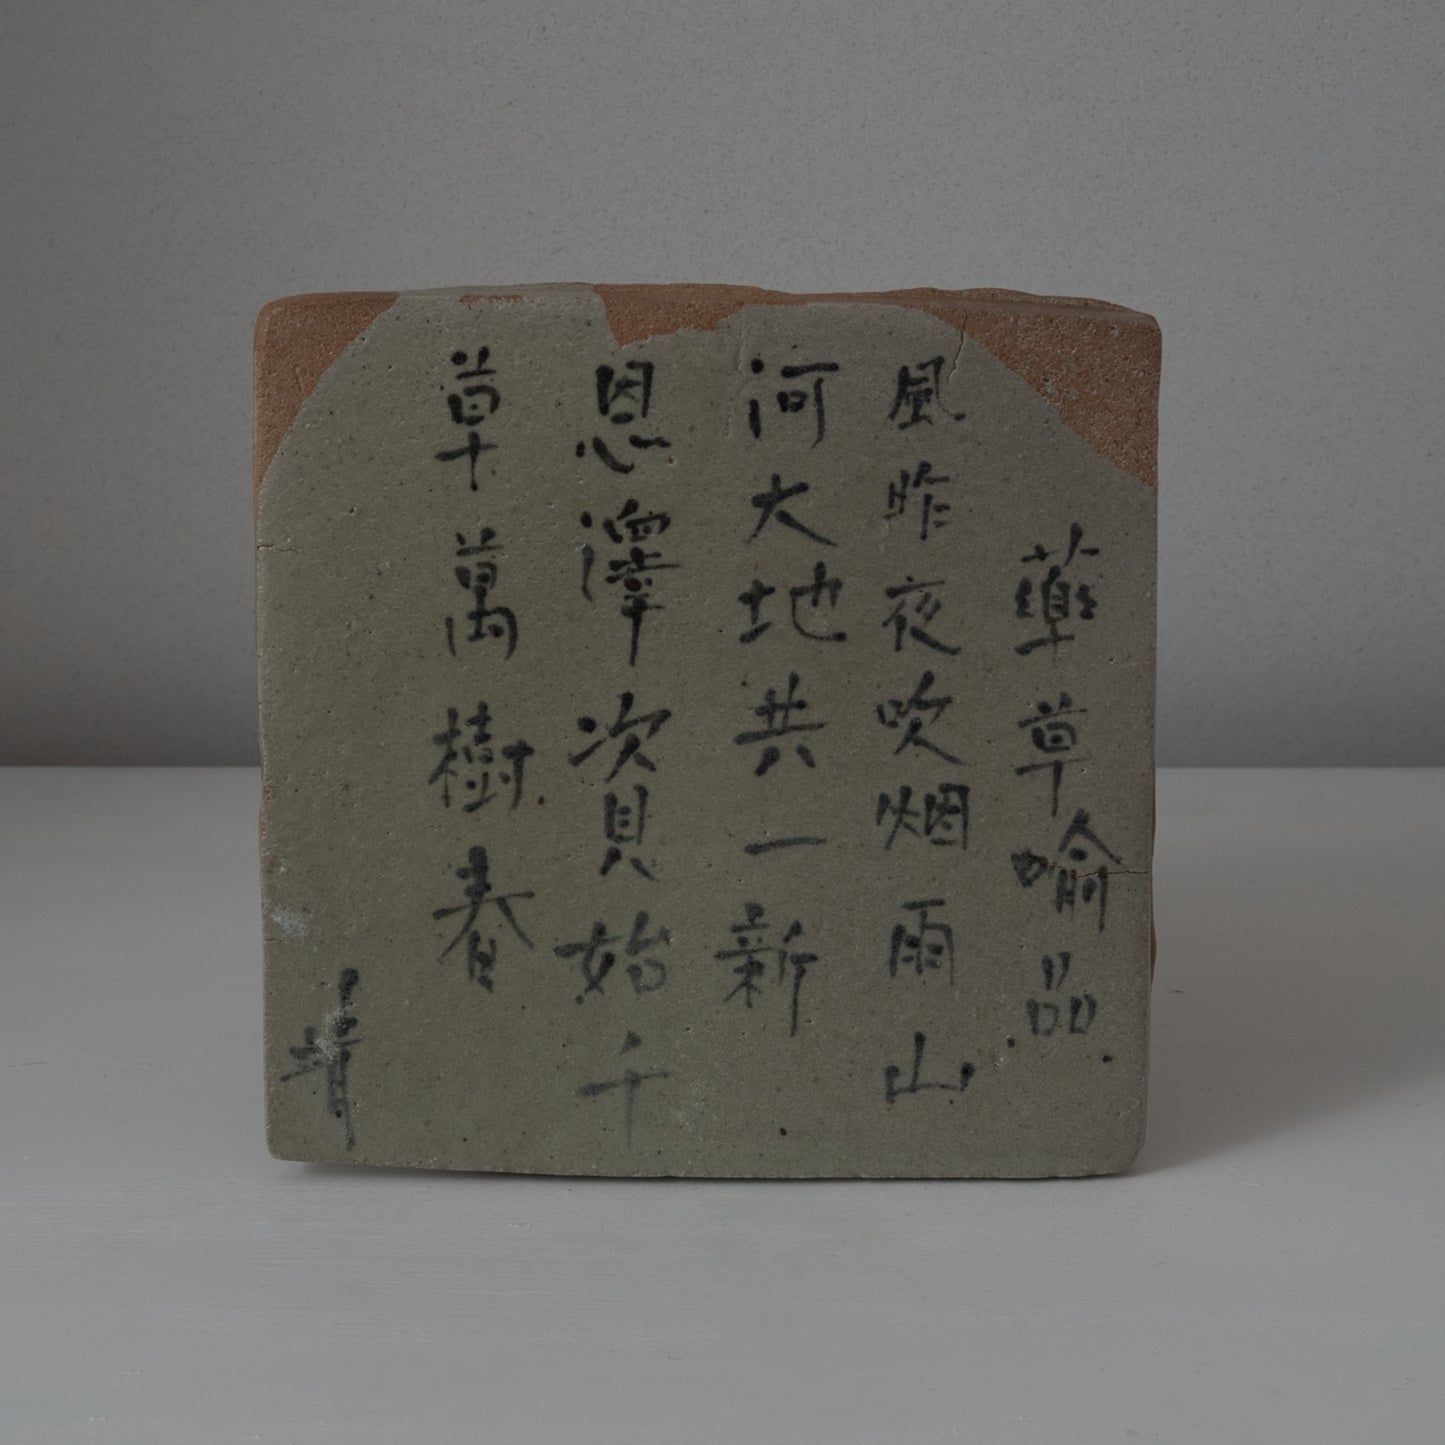 藥草喻品
風昨夜吹烟雨山
河大地共一新
恩澤次第始千
草萬樹春